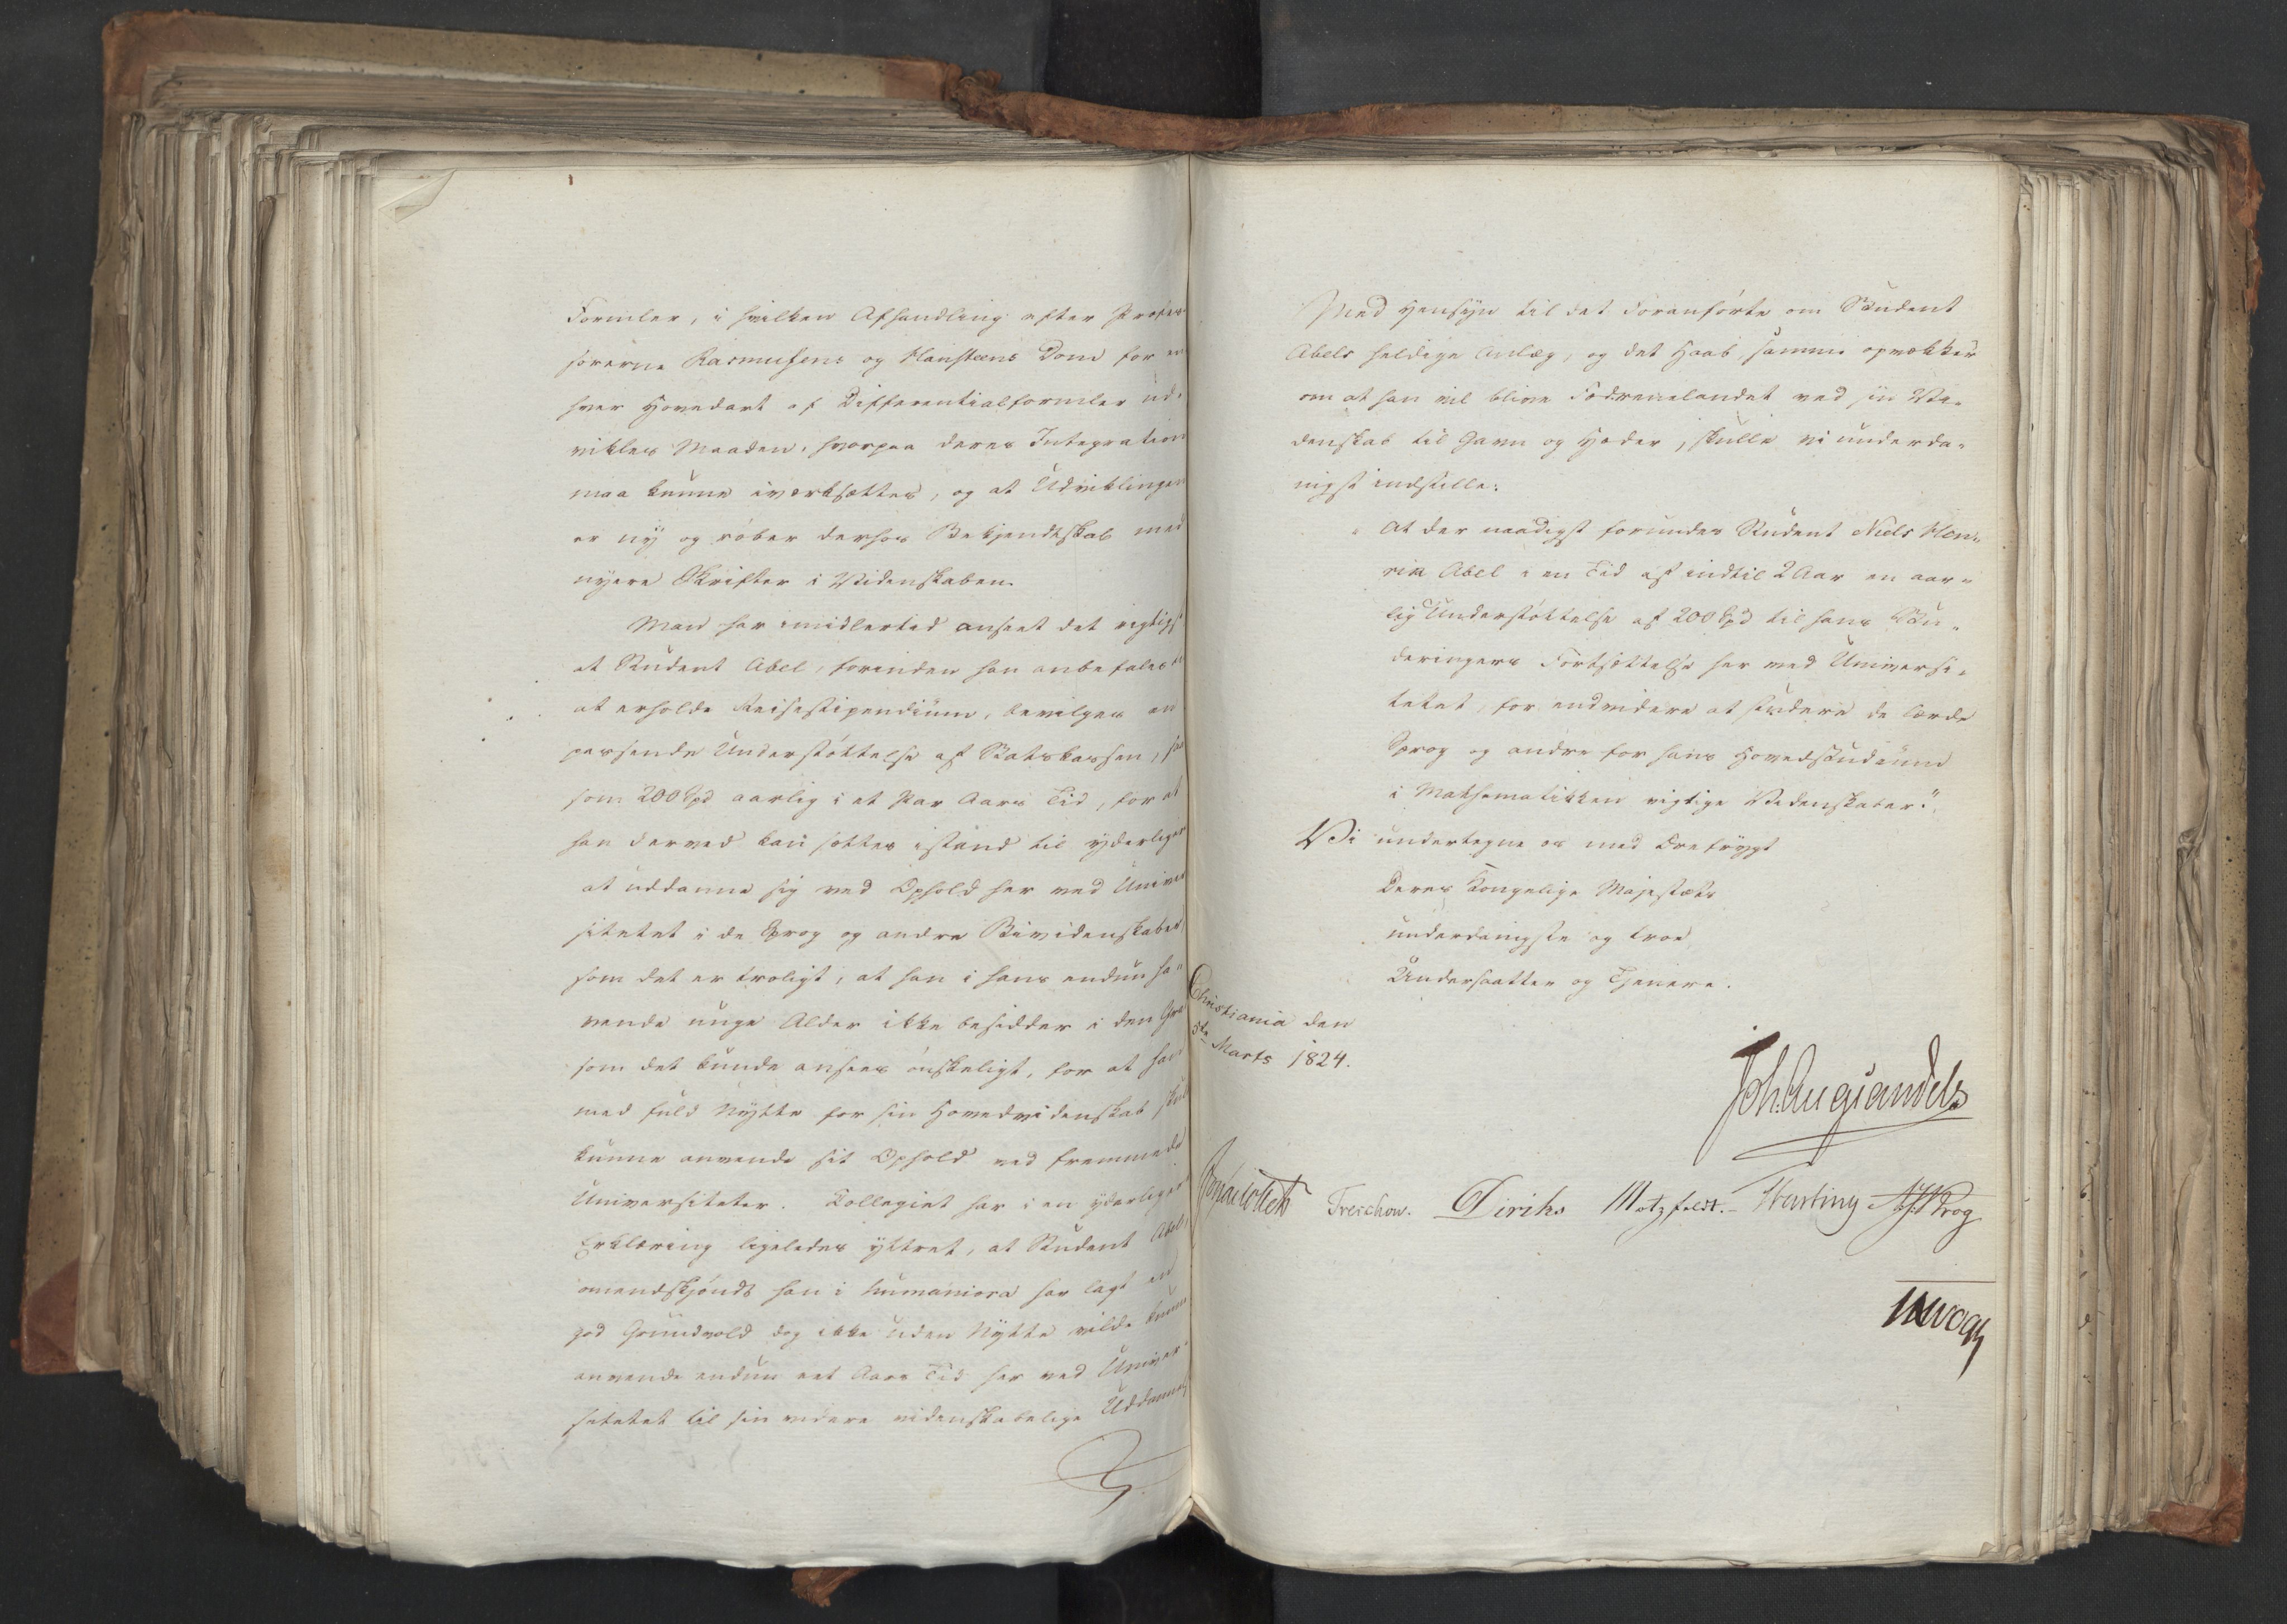 Formler, i hvilken Afhandling efter Profes
sorerne Rasmusens og Hansteens Dom for en
hver Hovedart af Differentialformler ud-
vikles Maaden, hvorpaa deres Integration
maa kunne iværksættes, og at Udviklingen
er ny og røber derhos Bekjendtskab med
nyere Skrifter i Videnskaben.
Man har imidlertid anseet det rigtigst
at Student Abel, forinden han anbefales
at erholde Reisestipendium, bevilges en
passende Understøttelse af Statskassen,
som 200 Spd aarlig i et Par Aars Tid, for at
han derved kan sættes istand til yderligere
at uddanne sig ved Ophold her ved Univer
sitetet i de Sprog og andre Bividenskaber
som det er troligt, at han i hans endnu ha-
vende unge Alder ikke besidder i den Gra
som det kunde ansees ønskeligt, for at han
med fuld Nytte for sin Hovedvidenskab skul
kunne anvende sit Ophold ved fremmede
Universiteter. Collegiet har i en yderligere
Erklæring ligeledes yttret, at Student Abel,
omendskjøndt han i humaniora har lagt en
god Grundvold dog ikke uden Nytte vilde kunne
anvende endnu eet Aars Tid her ved Univer
sitetet til sin videre videnskabelige Uddannelse
Med Hensyn til det Foranførte om Student
Abels heldige Anlæg, og det Haab samme opvækker
om at han vil blive Fædrenelandet ved sin Vi-
denskab til Gavn og Hæder, skulle vi underda-
nigst indstille:
"At der naadigst forundes Student Niels Hen-
rik Abel i en Tid af indtil 2 Aar en aar-
lig Understøttelse af 200 Spd til hans Stu-
deringers Fortsættelse her ved Universi-
tetet, for endvidere at studere de lærde
Sprog og andre for hans Hovedstudium
i Mathematikken vigtige Videnskaber."
Vi undertegne os med Ærefrygt
Deres Kongelige Majestæts
underdanigste og troe
Undersaatter og Tjenere.
Christiania den
5te Marts 1824.
Joh: Aug: Sandels
Treschow. Diriks Motzfeldt. Krog